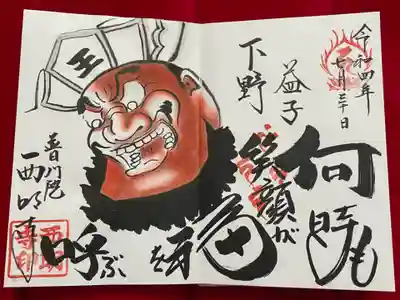 令和四年
七月三十日
何時も
益子
下野
笑顔が
福を
呼ぶ
王
普門院
西明寺